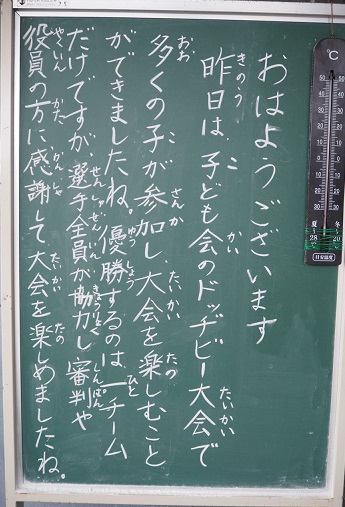 おはようございます
昨日は、子ども会のドッヂビー大会で
多くの子が参加し、大会を楽しむこと
ができましたね。優勝するのは、一チーム
だけですが、選手全員が協力し、審判や
役員の方に感謝して大会を楽しめましたね。
きのう
こ
かい
たいかい
おお
こ
さんか
たいかい
たの
ゆうしょう
ひと
せんしゅぜんいん
きょうりょく
しんぱん
やくいん
かた
かんしゃ
たいかい
たの
℃
50 50
40 40
30 30
20 20
10 10
0 0
10 10
20 20
30 30
夏28 冬20
目安温度